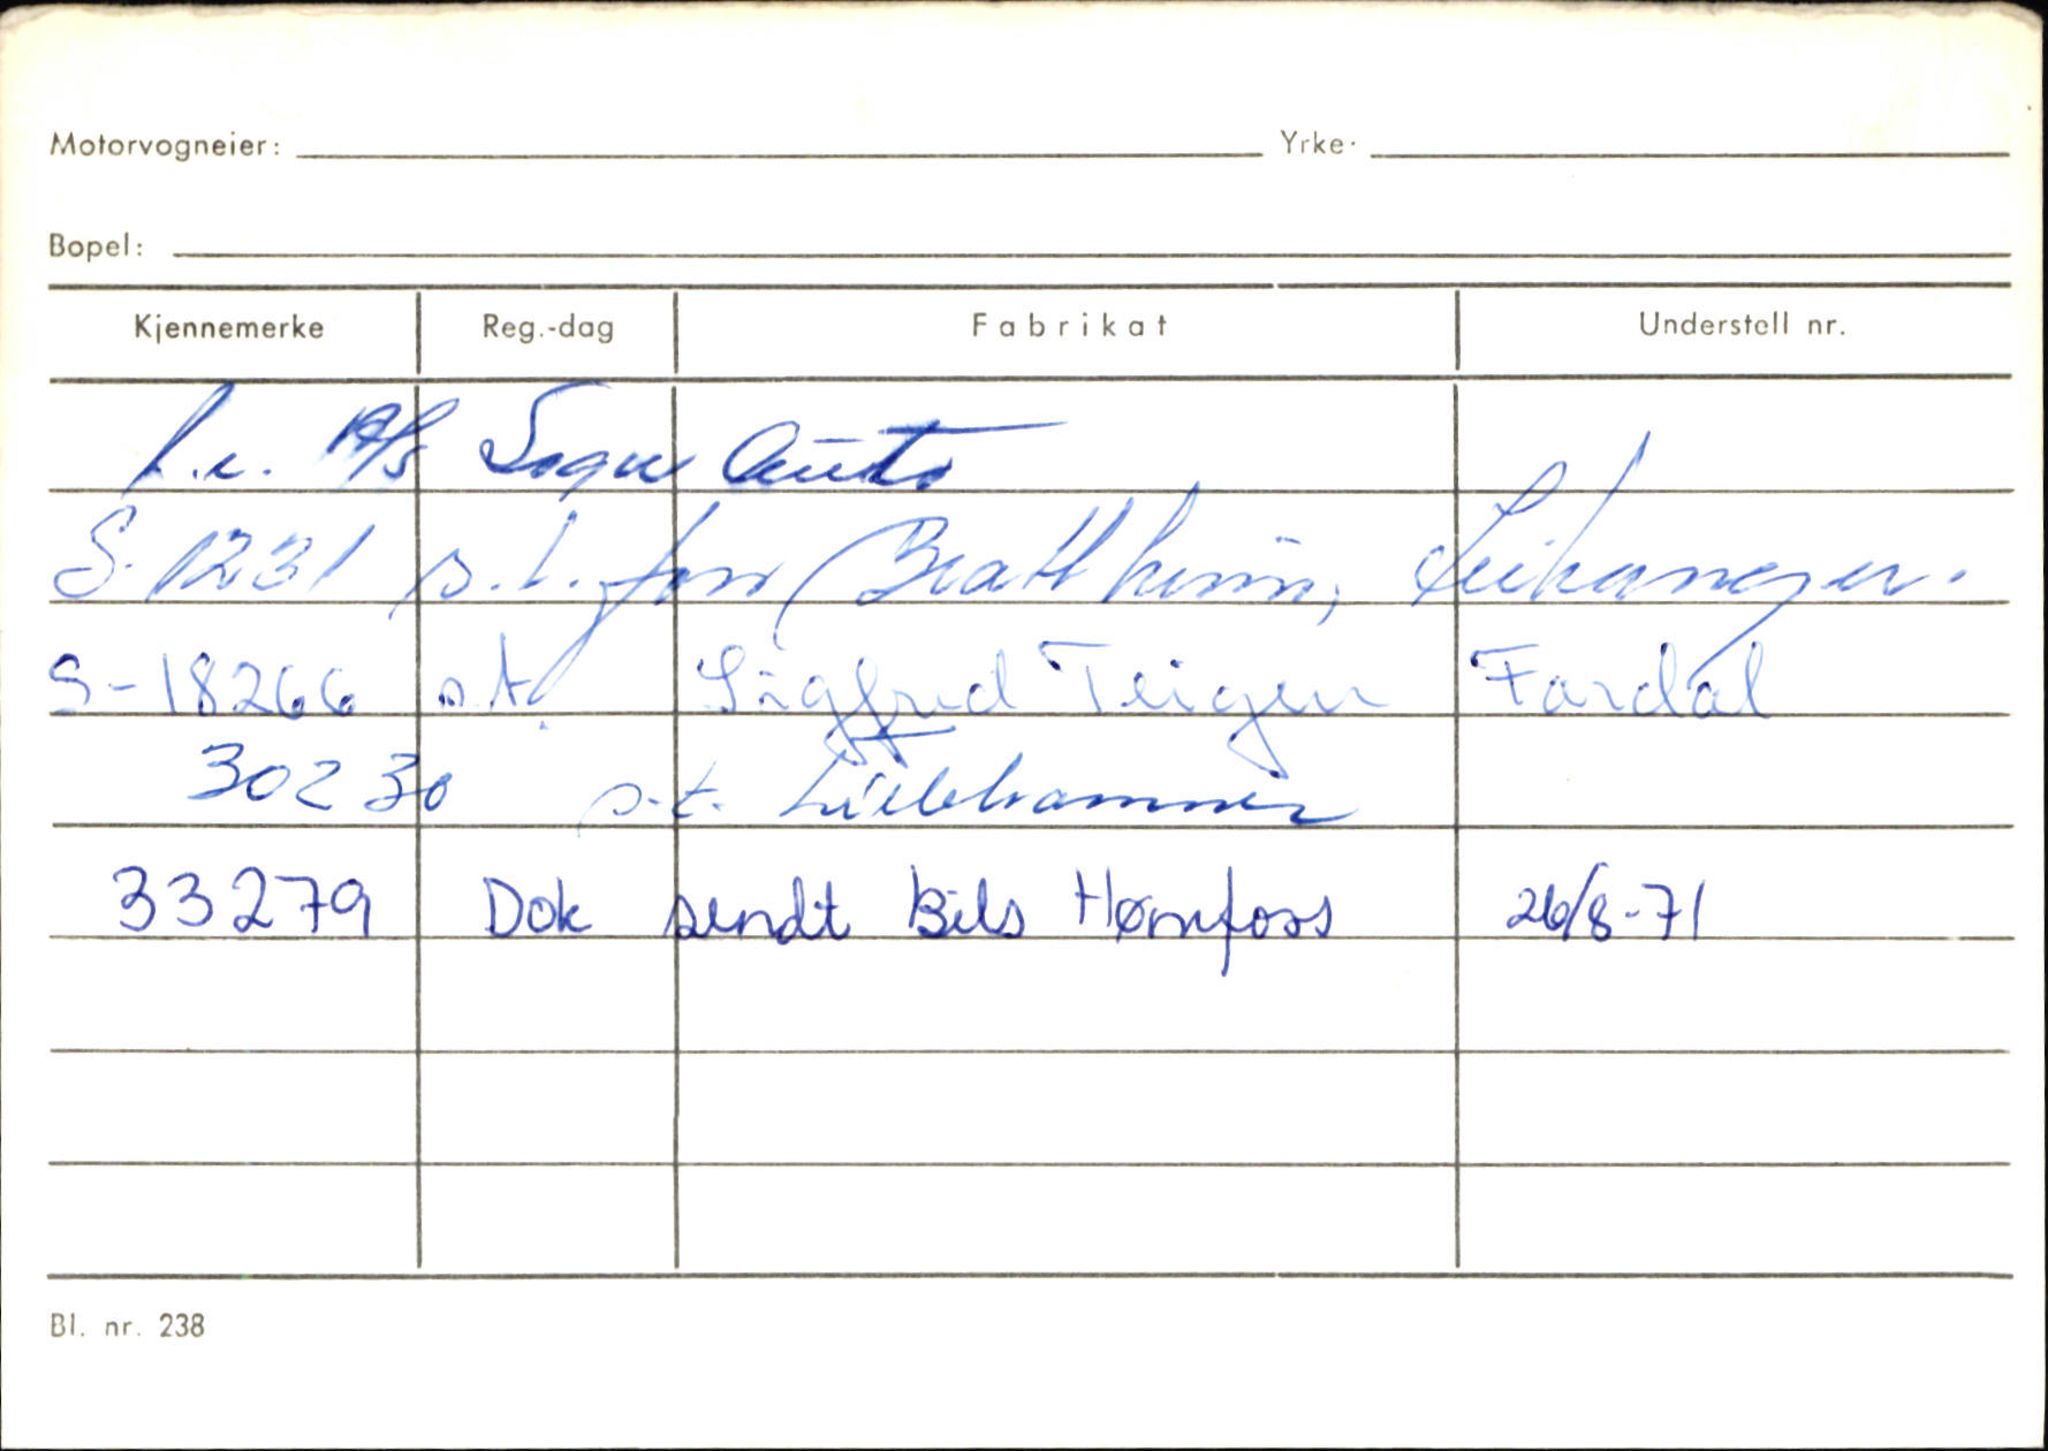 Motorvogneier: Yrke.
Bopel:
Kjennemerke Reg.-dag Fabrikat Understell nr.
A/S Sogn Auto
S. 1231 s.t. Jon Brattheim, Leikanger.
S-18266 s.t. Sigfred Teigen Fardal
30230 s.t. Lillehammer
33279 Dok sendt Bils Hønefoss 26/8-71
Bl. nr. 238